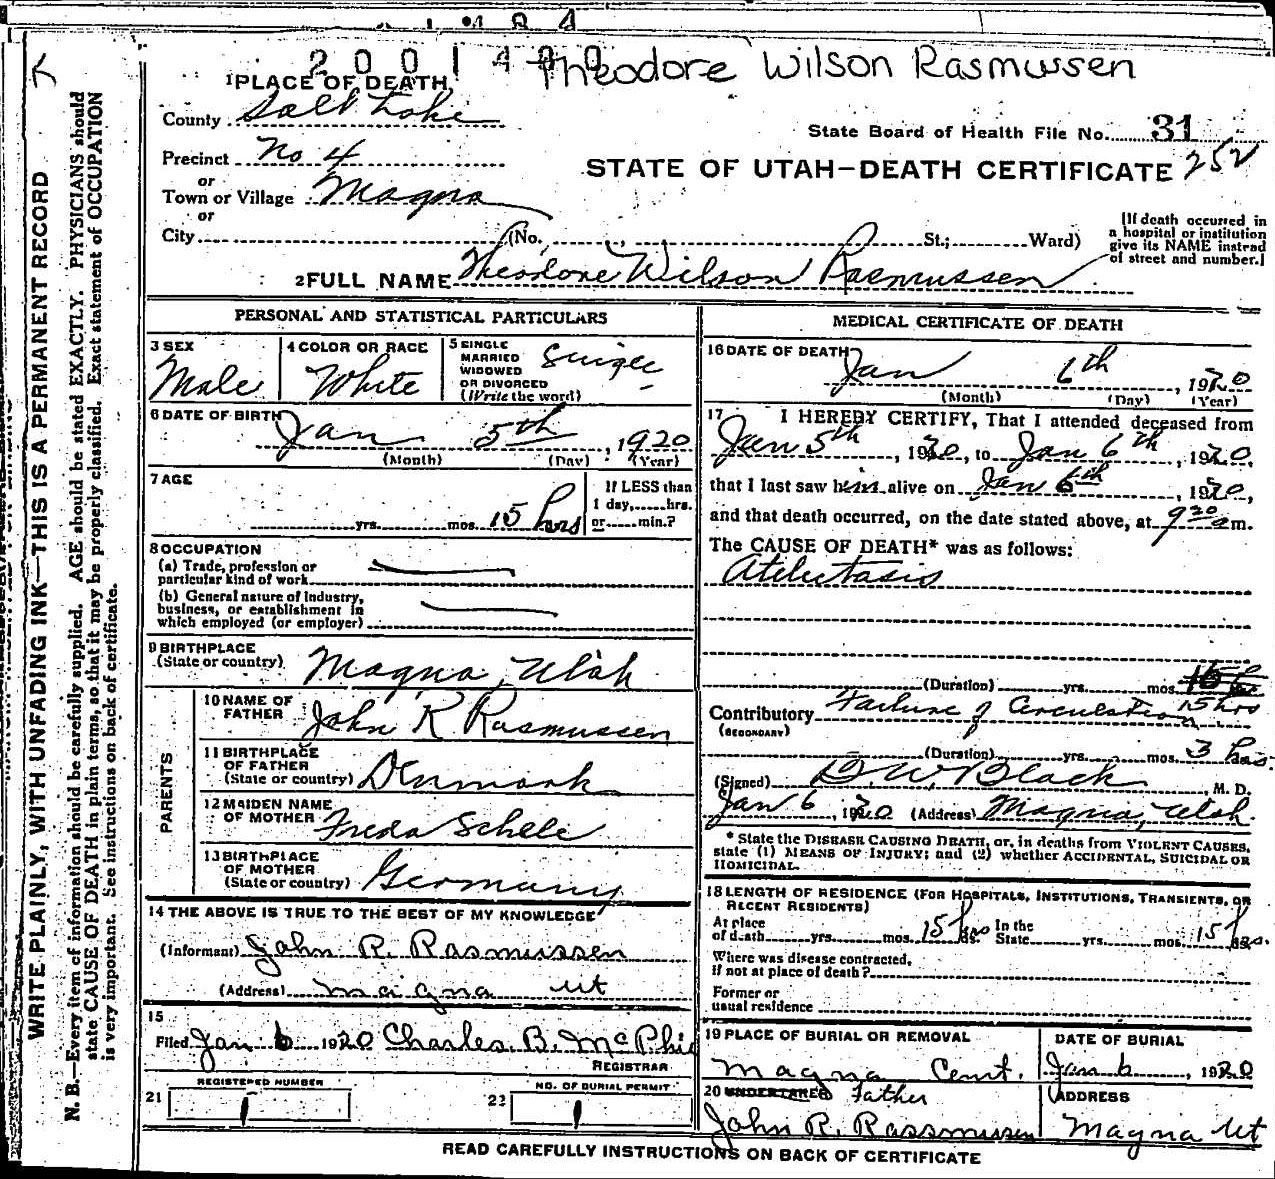 2001400 Theodore Wilson Rasmussen
1 PLACE OF DEATH
County Salt Lake
State Board of Health File No. 31
Precinct No 4
STATE OF UTAH—DEATH CERTIFICATE 252
or
Town or Village Magna
or
City (No. St.; Ward)
[If death occurred in
a hospital or institution
give its NAME instead
of street and number.]
2 FULL NAME Theodore Wilson Rasmussen
PERSONAL AND STATISTICAL PARTICULARS
3 SEX
Male
4 COLOR OR RACE
White
5 SINGLE
MARRIED
WIDOWED
OR DIVORCED
(Write the word)
Single
6 DATE OF BIRTH
Jan 5th, 1920
(Month) (Day) (Year)
7 AGE
yrs. mos. 15 hrs
If LESS than
1 day, hrs.
or min.?
8 OCCUPATION
(a) Trade, profession or
particular kind of work
(b) General nature of Industry,
business, or establishment in
which employed (or employer)
9 BIRTHPLACE
(State or country) Magna, Utah
PARENTS
10 NAME OF
FATHER John R Rasmussen
11 BIRTHPLACE
OF FATHER
(State or country) Denmark
12 MAIDEN NAME
OF MOTHER Freda Schele
13 BIRTHPLACE
OF MOTHER
(State or country) Germany
14 THE ABOVE IS TRUE TO THE BEST OF MY KNOWLEDGE
(Informant) John R. Rasmussen
(Address) Maigna Ut
15
Filed Jan 6 1920 Charles B. McPhi
REGISTRAR
REGISTERED NUMBER
21 1
NO. OF BURIAL PERMIT
22 1
MEDICAL CERTIFICATE OF DEATH
16 DATE OF DEATH
Jan 6th, 1920
(Month) (Day) (Year)
17 I HEREBY CERTIFY, That I attended deceased from
Jan 5th, 1920, to Jan 6th, 1920,
that I last saw him alive on Jan 6th, 1920,
and that death occurred, on the date stated above, at 9 20 am.
The CAUSE OF DEATH* was as follows:
Atelectasis
(Duration) yrs. mos. 15 hrs
Contributory Failure of Circulation
(SECONDARY)
(Duration) yrs. mos. 3 hrs.
(Signed) G. W. Black, M. D.
Jan 6, 1920 (Address) Magna, Utah.
* State the DISEASE CAUSING DEATH, or, in deaths from VIOLENT CAUSES,
state (1) MEANS OF INJURY; and (2) whether ACCIDENTAL, SUICIDAL OR
HOMICIDAL.
18 LENGTH OF RESIDENCE (FOR HOSPITALS, INSTITUTIONS, TRANSIENTS, OR
RECENT RESIDENTS)
At place
of death yrs. mos. 15 hrs In the
State yrs. mos. 15 hrs.
Where was disease contracted,
if not at place of death?
Former or
usual residence
19 PLACE OF BURIAL OR REMOVAL
Magna Cemt.
DATE OF BURIAL
Jan 6, 1920
20 UNDERTAKER Father
John R. Rassmussen
ADDRESS
Magna Ut
READ CAREFULLY INSTRUCTIONS ON BACK OF CERTIFICATE
WRITE PLAINLY, WITH UNFADING INK—THIS IS A PERMANENT RECORD
N. B.—Every item of information should be carefully supplied. AGE should be stated EXACTLY. PHYSICIANS should
state CAUSE OF DEATH in plain terms, so that it may be properly classified. Exact statement of OCCUPATION
is very important. See instructions on back of certificate.